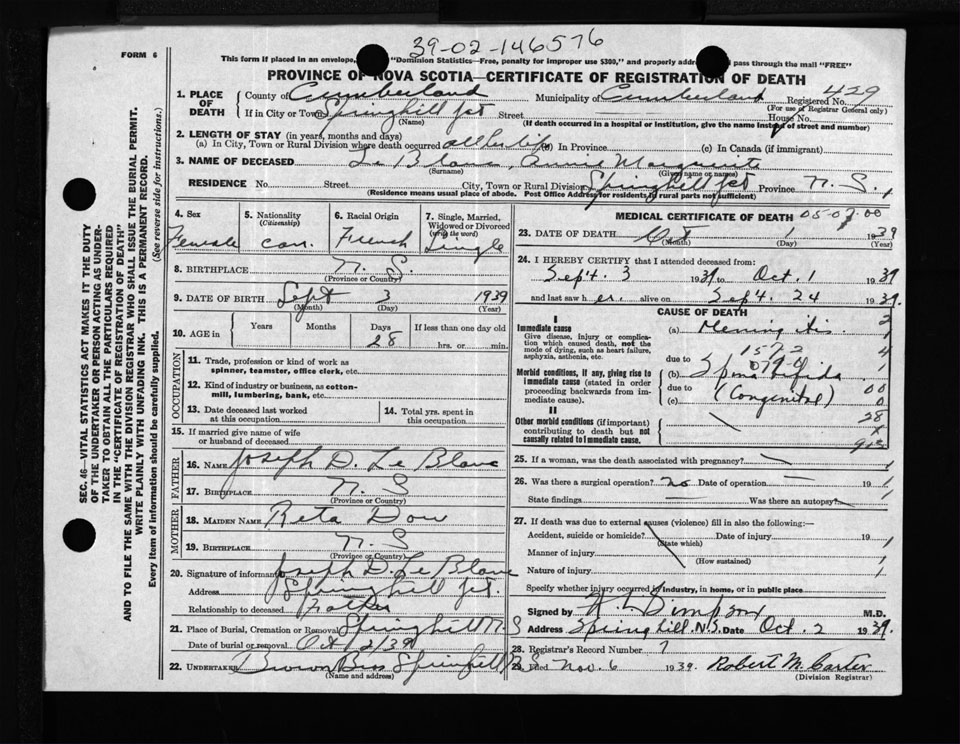 39-02-146576
FORM 6
This form if placed in an envelope, "Dominion Statistics—Free, penalty for improper use $300," and properly addressed pass through the mail "FREE"
PROVINCE OF NOVA SCOTIA—CERTIFICATE OF REGISTRATION OF DEATH
1. PLACE OF DEATH County of Cumberland Municipality of Cumberland Registered No. 429
(For use of Registrar General only)
If in City or Town Springhill Jct Street House No.
(Name) (If death occurred in a hospital or institution, give the name instead of street and number)
2. LENGTH OF STAY (in years, months and days)
(a) In City, Town or Rural Division where death occurred all her life (b) In Province (c) In Canada (if immigrant)
3. NAME OF DECEASED Le Blanc, Annie Marguerite
(Surname) (Given name or names)
RESIDENCE No. Street City, Town or Rural Division Springhill Jct Province N. S.
(Residence means usual place of abode. Post Office Address for residents of rural parts not sufficient)
4. Sex Female
5. Nationality (Citizenship) Can.
6. Racial Origin French
7. Single, Married, Widowed or Divorced (write the word) Single
8. BIRTHPLACE N. S.
(Province or Country)
9. DATE OF BIRTH Sept 3 1939
(Month) (Day) (Year)
10. AGE in Years Months Days 28 If less than one day old
hrs. or min.
OCCUPATION
11. Trade, profession or kind of work as spinner, teamster, office clerk, etc.
12. Kind of industry or business, as cotton-mill, lumbering, bank, etc.
13. Date deceased last worked at this occupation
14. Total yrs. spent in this occupation
15. If married give name of wife or husband of deceased
FATHER
16. NAME Joseph D. Le Blanc
17. BIRTHPLACE N. S
(Province or Country)
MOTHER
18. MAIDEN NAME Reta Dow
19. BIRTHPLACE N. S
(Province or Country)
20. Signature of informant Joseph D. Le Blanc
Address Springhill Jct.
Relationship to deceased Father
21. Place of Burial, Cremation or Removal Springhill N S
Date of burial or removal Oct 2/39
22. UNDERTAKER Brown Bros
(Name and address)
MEDICAL CERTIFICATE OF DEATH 05-07-00
23. DATE OF DEATH Oct 1 1939
(Month) (Day) (Year)
24. I HEREBY CERTIFY that I attended deceased from:
Sept. 3 1939 to Oct. 1 1939
and last saw her alive on Sept. 24 1939.
CAUSE OF DEATH
I
Immediate cause
Give disease, injury or complication which caused death, not the mode of dying, such as heart failure, asphyxia, asthenia, etc.
(a) Meningitis
due to
Morbid conditions, if any, giving rise to immediate cause (stated in order proceeding backwards from immediate cause).
(b) Spina Bifida
due to (Congenital)
(c)
II
Other morbid conditions (if important) contributing to death but not causally related to immediate cause.
25. If a woman, was the death associated with pregnancy?
26. Was there a surgical operation? no Date of operation 19
State findings Was there an autopsy?
27. If death was due to external causes (violence) fill in also the following:—
Accident, suicide or homicide? Date of injury 19
(State which)
Manner of injury
(How sustained)
Nature of injury
Specify whether injury occurred in industry, in home, or in public place
Signed by Simpson M.D.
Address Springhill, N.S. Date Oct. 2 1939.
28. Registrar's Record Number 7
29. Filed Nov. 6 1939. Robert M. Carter
(Division Registrar)
SEC. 46—VITAL STATISTICS ACT MAKES IT THE DUTY
OF THE UNDERTAKER OR PERSON ACTING AS UNDERTAKER TO OBTAIN ALL THE PARTICULARS REQUIRED
IN THE "CERTIFICATE OF REGISTRATION OF DEATH"
AND TO FILE THE SAME WITH THE DIVISION REGISTRAR WHO SHALL ISSUE THE BURIAL PERMIT.
WRITE PLAINLY WITH UNFADING INK. THIS IS A PERMANENT RECORD.
Every item of information should be carefully supplied. (See reverse side for instructions.)